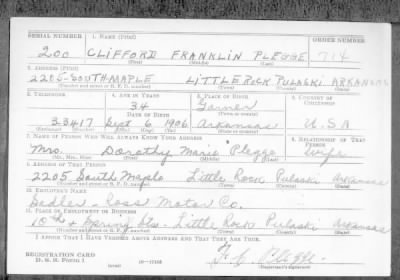 SERIAL NUMBER 1. NAME (Print) ORDER NUMBER
200 CLIFFORD FRANKLIN PLEGGE 714
(First) (Middle) (Last)
2. ADDRESS (Print)
2205-SOUTH-MAPLE LITTLE ROCK PULASKI ARKANSAS
(Number and street or R. F. D. number) (Town) (County) (State)
3. TELEPHONE 4. AGE IN YEARS 5. PLACE OF BIRTH 6. COUNTRY OF CITIZENSHIP
34 Garner
DATE OF BIRTH (Town or county)
33417 Sept 6 1906 Arkansas U.S.A
(Mo.) (Day) (Yr.) (State or country)
7. NAME OF PERSON WHO WILL ALWAYS KNOW YOUR ADDRESS 8. RELATIONSHIP OF THAT PERSON
Mrs. Dorothy Marie Plegge Wife
(Mr., Mrs., Miss) (First) (Middle) (Last)
9. ADDRESS OF THAT PERSON
2205 South Maple Little Rock Pulaski Arkansas
(Number and street or R. F. D. number) (Town) (County) (State)
10. EMPLOYER'S NAME
Ross Motor Co.
11. PLACE OF EMPLOYMENT OR BUSINESS
10th & Spring Sts - Little Rock Pulaski Arkansas
(Number and street or R. F. D. number) (Town) (County) (State)
I AFFIRM THAT I HAVE VERIFIED ABOVE ANSWERS AND THAT THEY ARE TRUE.
REGISTRATION CARD
D. S. S. Form 1 16-17105 (Registrant's signature)